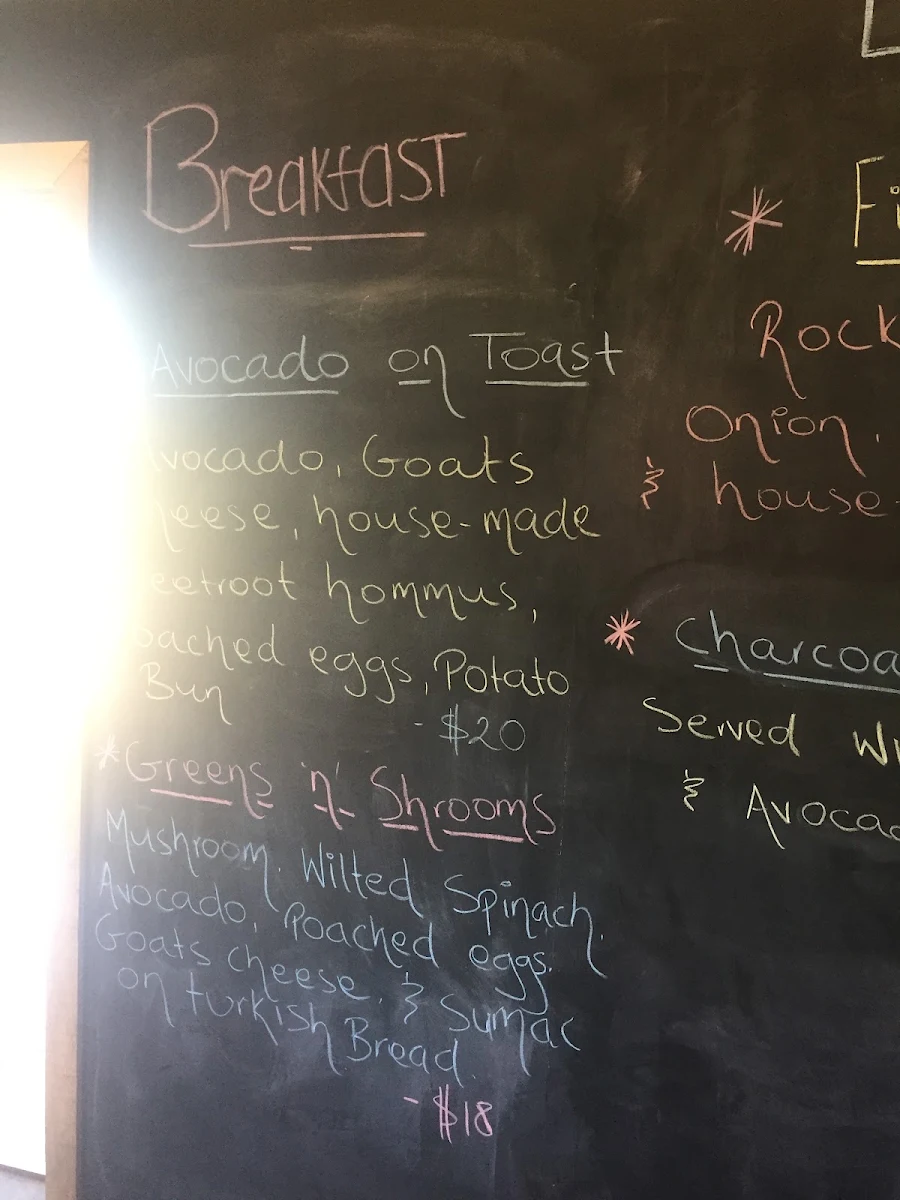 Breakfast
Avocado on Toast
vocado, Goats
heese, house-made
eetroot hommus,
oached eggs, Potato
Bun
- $20
*Greens 'n' Shrooms
Mushroom, Wilted Spinach,
Avocado, Poached eggs,
Goats cheese, & Sumac
on turkish Bread
- $18
* Fi
Rock
Onion,
& house-
* Charcoa
Served wi
& Avocad